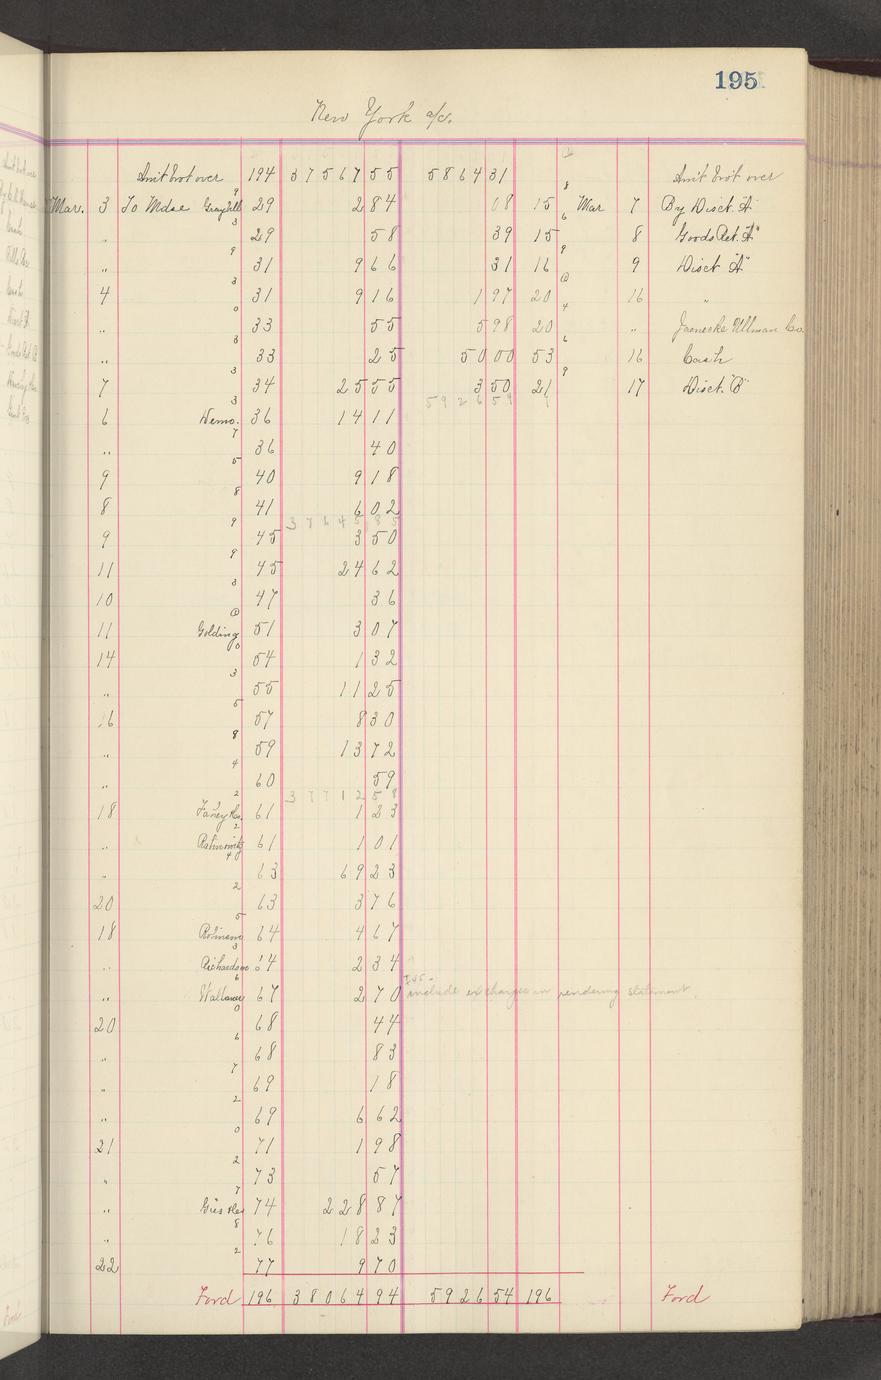 195
New York a/c.
Am't bro't over 194 37567 55 5864 31 Am't bro't over
Mar. 3 To Mdse Graybill 29 2 84 08 15 Mar 7 By Disct. "A"
" 29 58 39 15 8 Goods Ret. "A"
" 31 9 66 31 16 9 Disct "A"
4 31 9 16 1 97 20 16 "
" 33 55 5 98 20 " Jaenecke Ullman Co.
" 33 25 50 00 53 16 Cash
7 34 25 55 3 50 21 17 Disct. "B"
5926 59
6 Demo. 36 14 11
" 36 40
9 40 9 18
8 41 6 02
37645 85
9 45 3 50
11 45 24 62
10 47 36
11 Golding 51 3 07
14 54 1 32
" 55 11 25
16 57 8 30
" 59 13 72
" 60 59
37712 58
18 61 1 23
" Rabinowitz 61 1 01
" 63 69 23
20 63 3 76
18 64 4 67
" Richardson 64 2 34
" 67 2 70 include exchange in rendering statement.
20 68 44
" 68 83
" 69 18
" 69 6 62
21 71 1 98
" 73 57
" 74 228 87
" 76 18 23
22 77 9 70
Ford 196 38064 94 5926 54 196 Ford